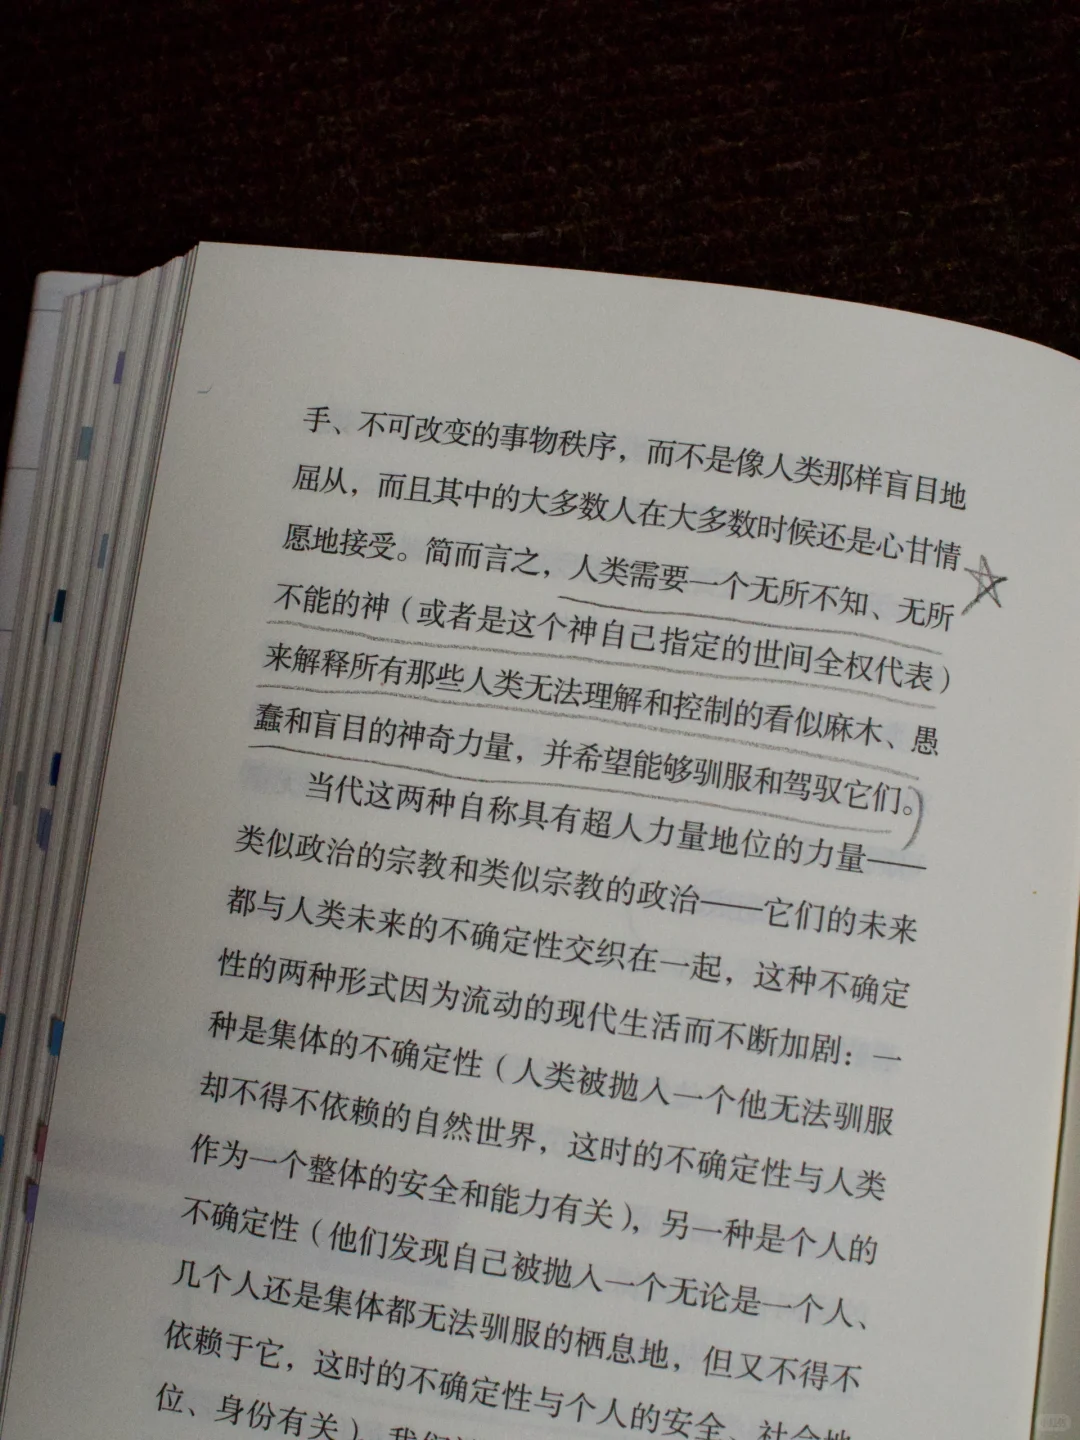 手、不可改变的事物秩序，而不是像人类那样盲目地
屈从，而且其中的大多数人在大多数时候还是心甘情
愿地接受。简而言之，人类需要一个无所不知、无所
不能的神（或者是这个神自己指定的世间全权代表）
来解释所有那些人类无法理解和控制的看似麻木、愚
蠢和盲目的神奇力量，并希望能够驯服和驾驭它们。
当代这两种自称具有超人力量地位的力量——
类似政治的宗教和类似宗教的政治——它们的未来
都与人类未来的不确定性交织在一起，这种不确定
性的两种形式因为流动的现代生活而不断加剧：一
种是集体的不确定性（人类被抛入一个他无法驯服
却不得不依赖的自然世界，这时的不确定性与人类
作为一个整体的安全和能力有关），另一种是个人的
不确定性（他们发现自己被抛入一个无论是一个人、
几个人还是集体都无法驯服的栖息地，但又不得不
依赖于它，这时的不确定性与个人的安全、社会地
位、身份有关）。我们